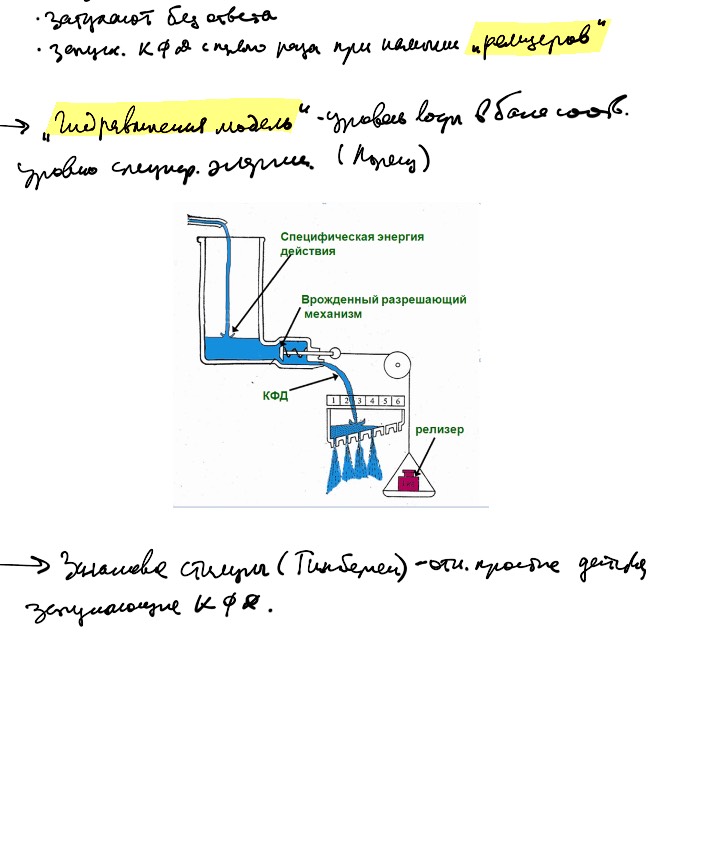 · затухают без ответа
· запуск. КФД с первого раза при наличии „релизеров“
→ „Гидравлическая модель“ - уровень воды в баке соотв.
уровню специф. энергии. (Лоренц)
Специфическая энергия
действия
Врожденный разрешающий
механизм
КФД
1 2 3 4 5 6
релизер
→ Знаковые стимулы (Тинберген) - отн. простые действия
запускающие КФД.